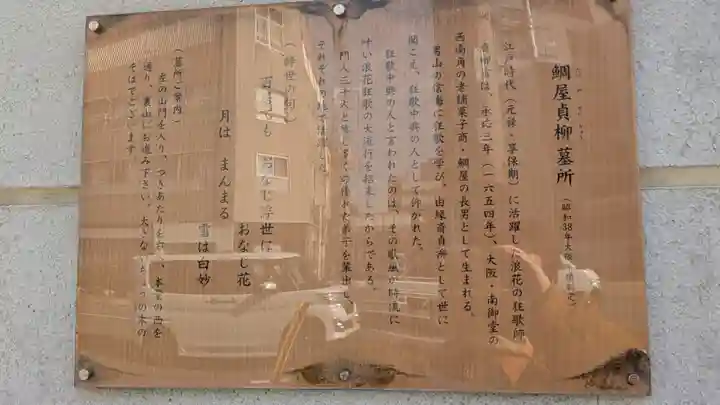 たい や てい りゅう
鯛屋貞柳墓所
(昭和38年大阪
江戸時代(元禄・享保期)に活躍した浪花の狂歌師
は、承応三年(一六五四年)、大阪・南御堂の
西南角の老舗菓子商・鯛屋の長男として生まれる。
男山の信海に狂歌を学び、由縁斎貞柳として世に
聞こえ、狂歌中興の人として許かれた。
狂歌中興の人と言われたのは、その歌風が時流に
叶い浪花狂歌の大流行を招来したからである。
門人三千人と
た弟子を輩出し、
それぞれの
(辞世の句)
おなじ浮世に
おなし花
月は まんまる
雪は白妙
(墓所ご案内)
左の山門を入り、つきあたりを右へ、本堂の西を
通り、裏山にお進み下さい。大きな
の木の
そばでございます。